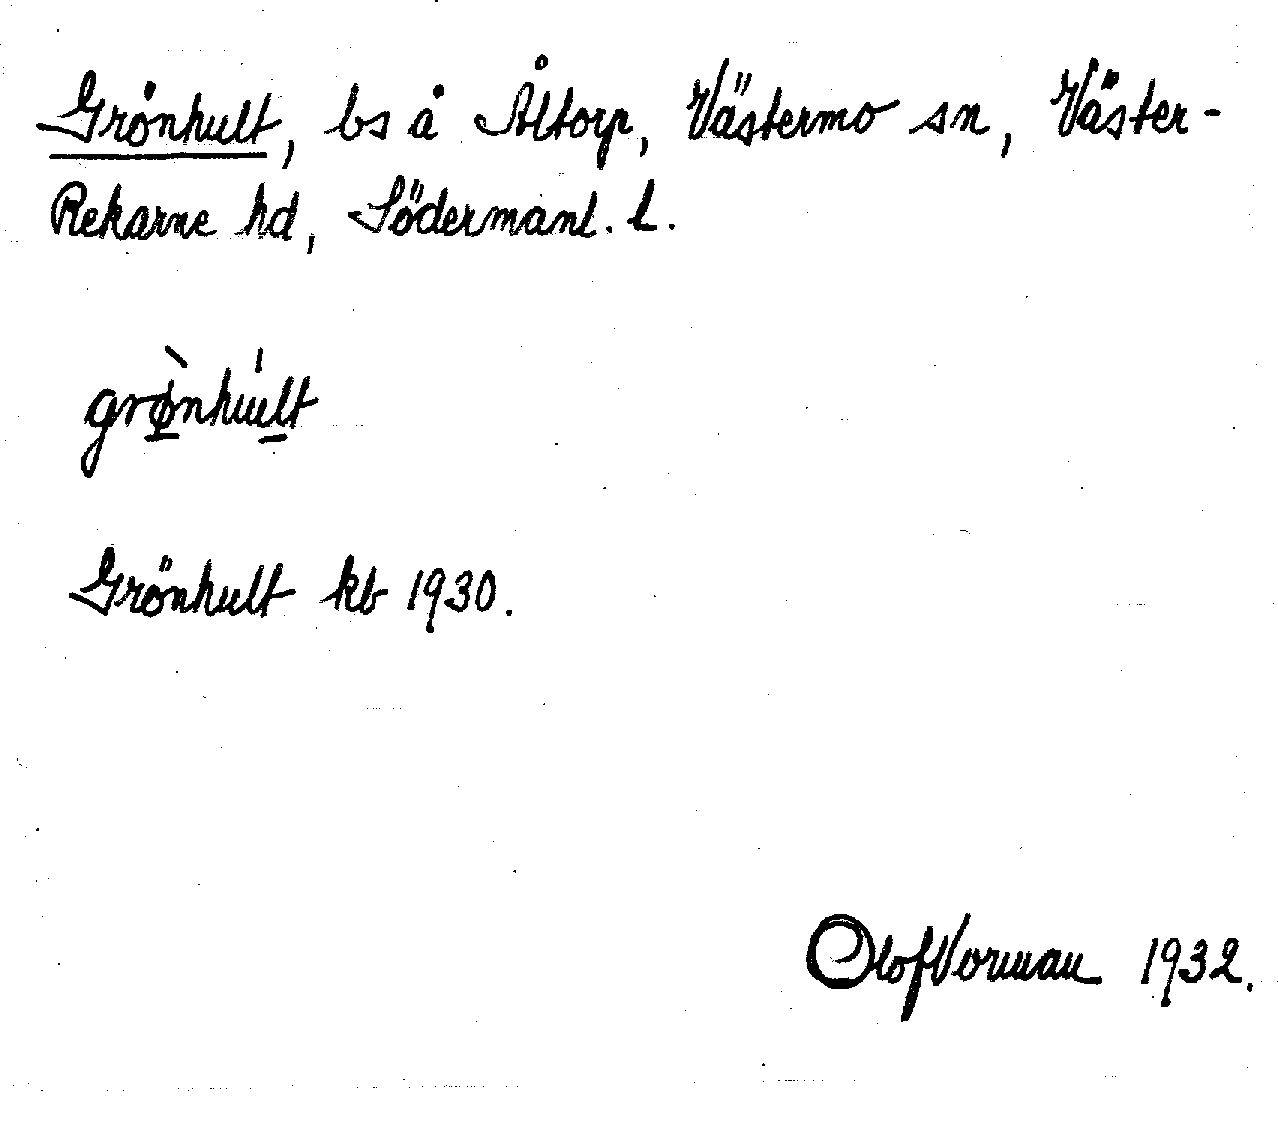 Grönhult, bs å Åltorp, Västermo sn, Väster-
Rekarne hd, Södermanl. l.
grø̀nhúlt
Grönhult kb 1930.
Olof Vorman 1932.